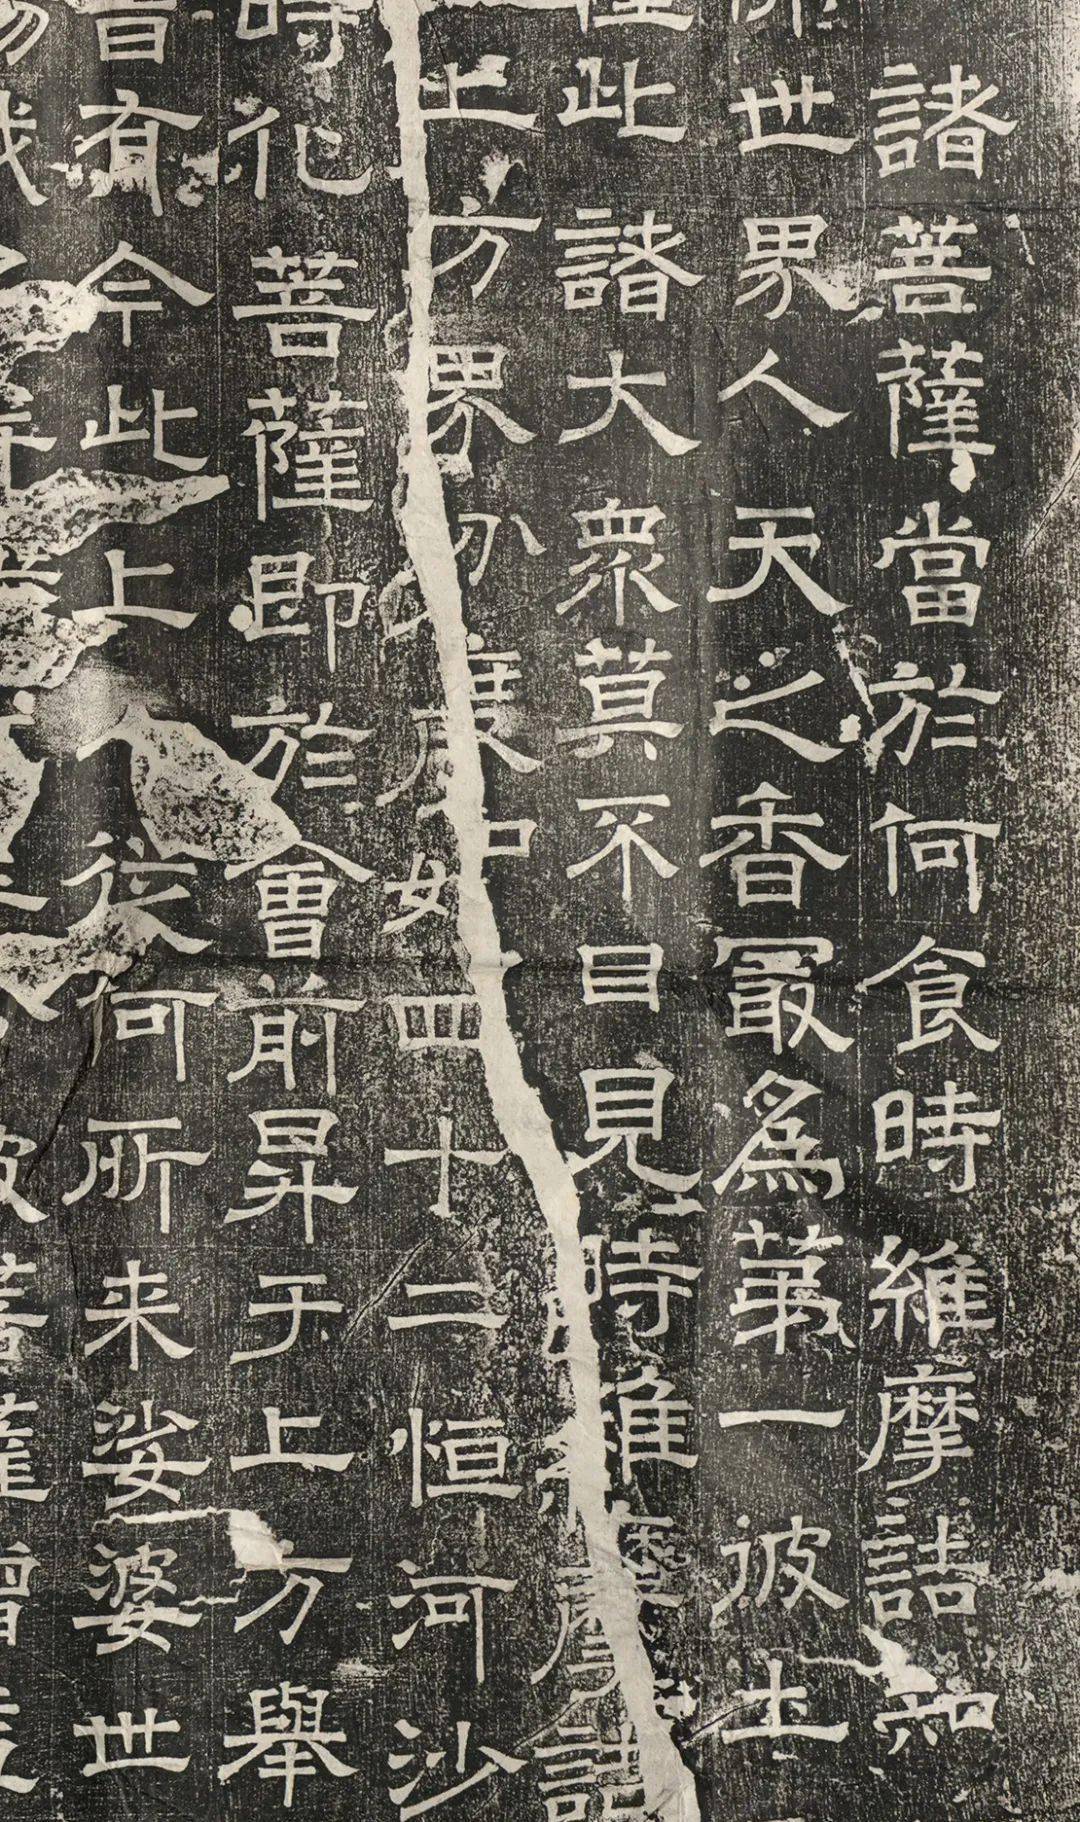 諸菩薩當於何食時維摩詰知
世界人天之香㝡為苐一彼土
此諸大衆莫不目見時維摩詰
上方界分度如四十二恒河沙
時化菩薩即於會前昇于上方舉
曾有今此上人從何所来娑婆世